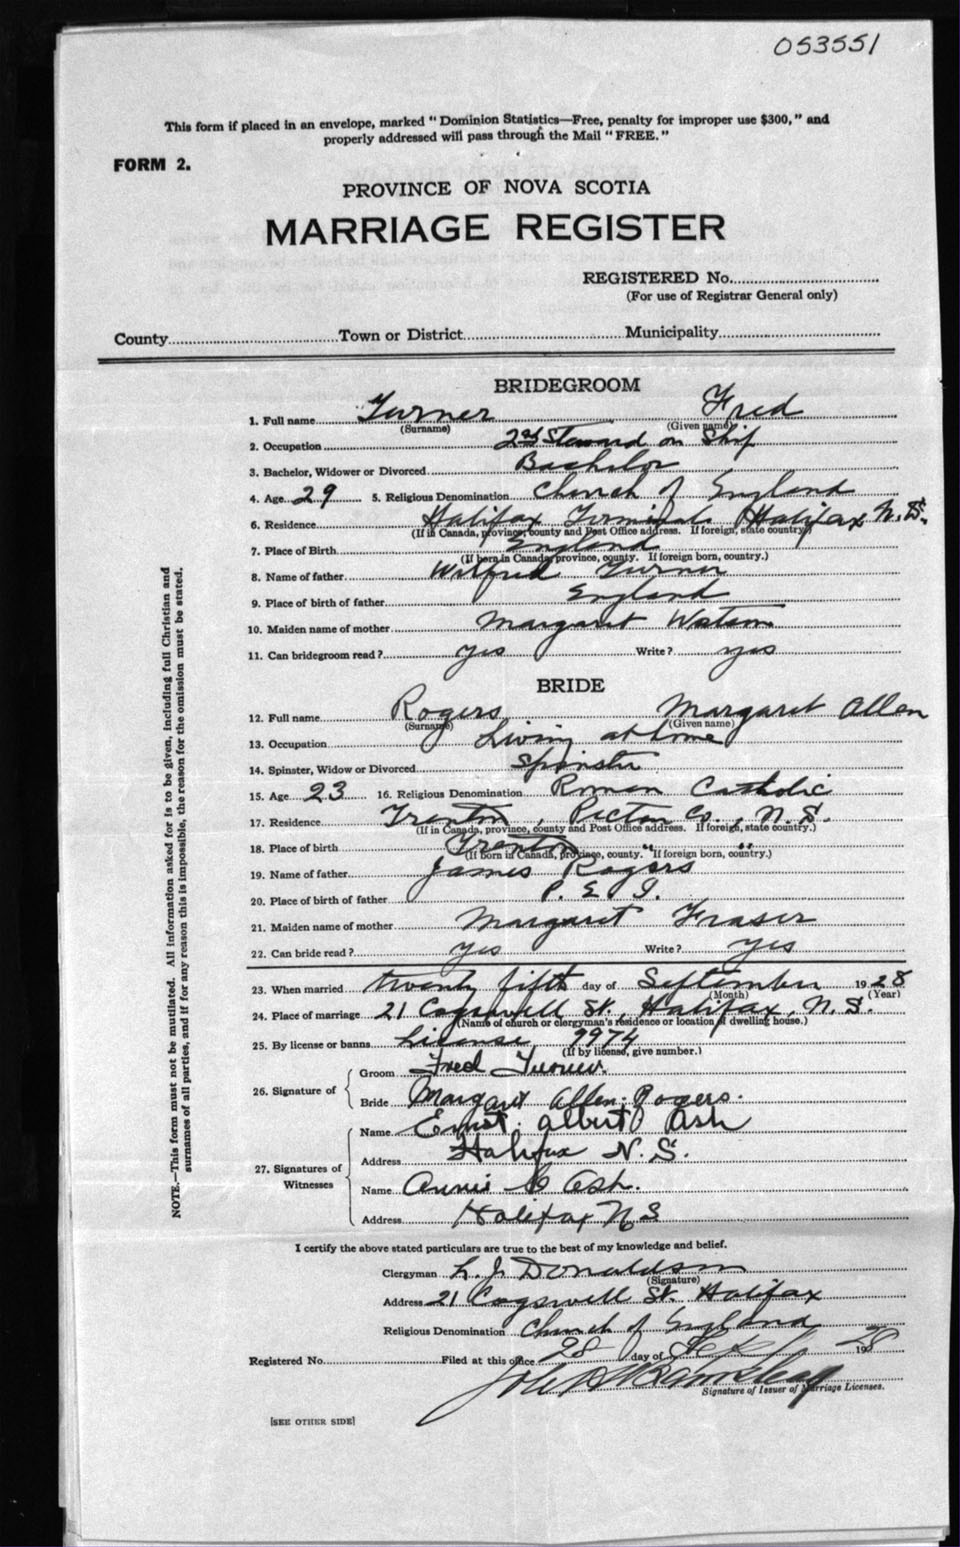 053551
This form if placed in an envelope, marked "Dominion Statistics—Free, penalty for improper use $300," and
properly addressed will pass through the Mail "FREE."
FORM 2.
PROVINCE OF NOVA SCOTIA
MARRIAGE REGISTER
REGISTERED No.
(For use of Registrar General only)
County Town or District Municipality
BRIDEGROOM
1. Full name Turner Fred
(Surname) (Given name)
2. Occupation 2nd Steward on Ship
3. Bachelor, Widower or Divorced Bachelor
4. Age 29 5. Religious Denomination Church of England
6. Residence Halifax Terminals Halifax N.S.
(If in Canada, province, county and Post Office address. If foreign, state country)
7. Place of Birth England
(If born in Canada, province, county. If foreign born, country.)
8. Name of father Wilfred Turner
9. Place of birth of father England
10. Maiden name of mother Margaret Watson
11. Can bridegroom read? yes Write? yes
BRIDE
12. Full name Rogers Margaret Allen
(Surname) (Given name)
13. Occupation Living at home
14. Spinster, Widow or Divorced Spinster
15. Age 23 16. Religious Denomination Roman Catholic
17. Residence Trenton, Pictou Co., N.S.
(If in Canada, province, county and Post Office address. If foreign, state country.)
18. Place of birth Trenton " "
(If born in Canada, province, county. If foreign born, country.)
19. Name of father James Rogers
20. Place of birth of father P. E. I.
21. Maiden name of mother Margaret Fraser
22. Can bride read? yes Write? yes
23. When married twenty fifth day of September 1928
(Month) (Year)
24. Place of marriage 21 Cogswell St., Halifax, N.S.
(Name of church or clergyman's residence or location of dwelling house.)
25. By license or banns License 7974
(If by license, give number.)
26. Signature of
Groom Fred Turner.
Bride Margaret Allen Rogers.
27. Signatures of Witnesses
Name Ernst. Albert Ash
Address Halifax N.S.
Name Annie C Ash.
Address Halifax N S
I certify the above stated particulars are true to the best of my knowledge and belief.
Clergyman L. J. Donaldson
(Signature)
Address 21 Cogswell St. Halifax
Religious Denomination Church of England
Registered No. Filed at this office 28 day of Sept 1928
Signature of Issuer of Marriage Licenses.
[SEE OTHER SIDE]
NOTE.—This form must not be mutilated. All information asked for is to be given, including full Christian and
surnames of all parties, and if for any reason this is impossible, the reason for the omission must be stated.